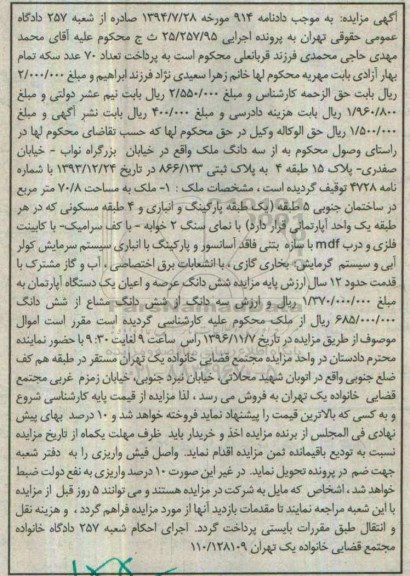 آگهی مزایده: به موجب دادنامه ۹۱۴ مورخه ۱۳۹۴/۷/۲۸ صادره از شعبه ۲۵۷ دادگاه
عمومی حقوقی تهران به پرونده اجرایی ۲۵/۲۵۷/۹۵ ث ج محکوم علیه آقای محمد
مهدی حاجی محمدی فرزند قربانعلی محکوم است به پرداخت تعداد ۷۰ عدد سکه تمام
بهار آزادی بابت مهریه محکوم لها خانم زهرا سعیدی نژاد فرزند ابراهیم و مبلغ ۲/۰۰۰/۰۰۰
ریال بابت حق الزحمه کارشناس و مبلغ ۲/۵۵۰/۰۰۰ ریال بابت نیم عشر دولتی و مبلغ
۱/۹۶۰/۸۰۰ ریال بابت هزینه دادرسی و مبلغ ۴۰۰/۰۰۰ ریال بابت نشر آگهی و مبلغ
۱/۵۰۰/۰۰۰ ریال حق الوکاله وکیل در حق محکوم لها که حسب تقاضای محکوم لها در
راستای وصول محکوم به از سه دانگ ملک واقع در خیابان بزرگراه نواب - خیابان
صفدری- پلاک ۱۵ طبقه ۴ به پلاک ثبتی ۸۶۶/۱۳۳ در تاریخ ۱۳۹۳/۱۲/۲۴ با شماره
نامه ۴۷۲۸ توقیف گردیده است ، مشخصات ملک : ۱- ملک به مساحت ۷۰/۸ متر مربع
در ساختمان جنوبی ۵ طبقه (یک طبقه پارکینگ و انباری و ۴ طبقه مسکونی که در هر
طبقه یک واحد آپارتمانی قرار دارد) با نمای سنگ ۲ خوابه - با کف سرامیک- با کابینت
فلزی و درب mdf با سازه بتنی فاقد آسانسور و پارکینگ با انباری سیستم سرمایش کولر
آبی و سیستم گرمایش، بخاری گازی ، با انشعابات برق اختصاصی ، آب و گاز مشترک با
قدمت حدود ۱۲ سال ارزش پایه مزایده شش دانگ عرصه و اعیان یک دستگاه آپارتمان به
مبلغ ۱/۳۷۰/۰۰۰/۰۰۰ ریال و ارزش سه دانگ از شش دانگ مشاع از شش دانگ
۶۸۵/۰۰۰/۰۰۰ ریال از ملک محکوم علیه کارشناسی گردیده است مقرر است اموال
موصوف از طریق مزایده در تاریخ ۱۳۹۶/۱۱/۷ راس ساعت ۹ لغایت ۹:۳۰ با حضور نماینده
محترم دادستان در واحد مزایده مجتمع قضایی خانواده یک تهران مستقر در طبقه هم کف
ضلع جنوبی واقع در اتوبان شهید محلاتی، خیابان نبرد جنوبی، خیابان زمزم غربی مجتمع
قضایی خانواده یک تهران به فروش می رسد ، لذا مزایده از قیمت پایه کارشناسی شروع
و به کسی که بالاترین قیمت را پیشنهاد نماید فروخته خواهد شد و ۱۰ درصد بهای پیش
نهادی فی المجلس از برنده مزایده اخذ و خریدار باید ظرف مهلت یکماه از تاریخ مزایده
نسبت به تودیع باقیمانده ثمن مزایده اقدام نماید. واصل فیش واریزی را به دفتر شعبه
جهت ضم در پرونده تحویل نماید. در غیر این صورت ۱۰ درصد واریزی به نفع دولت ضبط
خواهد شد ، اشخاص که مایل به شرکت در مزایده هستند و می توانند ۵ روز قبل از مزایده
با این شعبه مراجعه نمایند تا مقدمات بازدید آنها از مورد مزایده فراهم گردد ، و هزینه نقل
و انتقال طبق مقررات بایستی پرداخت گردد. اجرای احکام شعبه ۲۵۷ دادگاه خانواده
مجتمع قضایی خانواده یک تهران ۱۱۰/۱۲۸۱۰۹